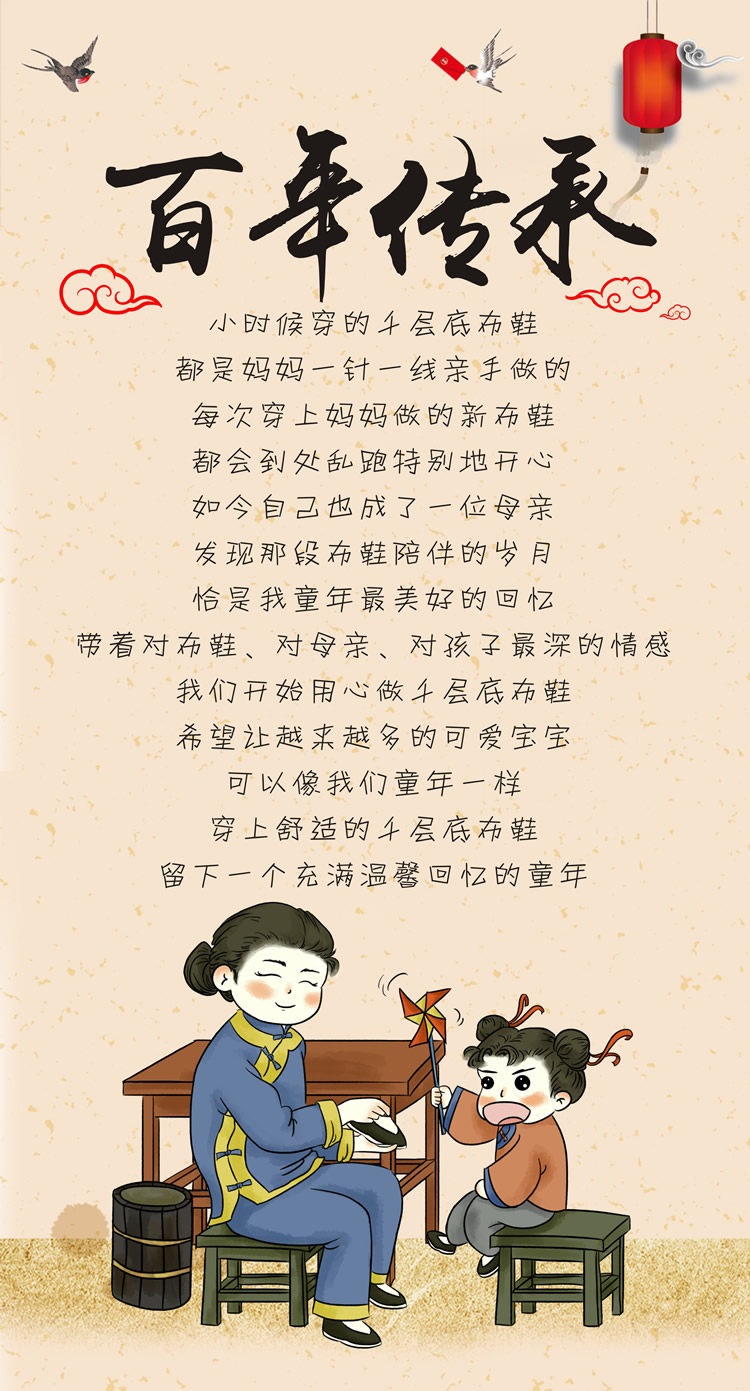 百年传承
小时候穿的千层底布鞋
都是妈妈一针一线亲手做的
每次穿上妈妈做的新布鞋
都会到处乱跑特别地开心
如今自己也成了一位母亲
发现那段布鞋陪伴的岁月
恰是我童年最美好的回忆
带着对布鞋、对母亲、对孩子最深的情感
我们开始用心做千层底布鞋
希望让越来越多的可爱宝宝
可以像我们童年一样
穿上舒适的千层底布鞋
留下一个充满温馨回忆的童年